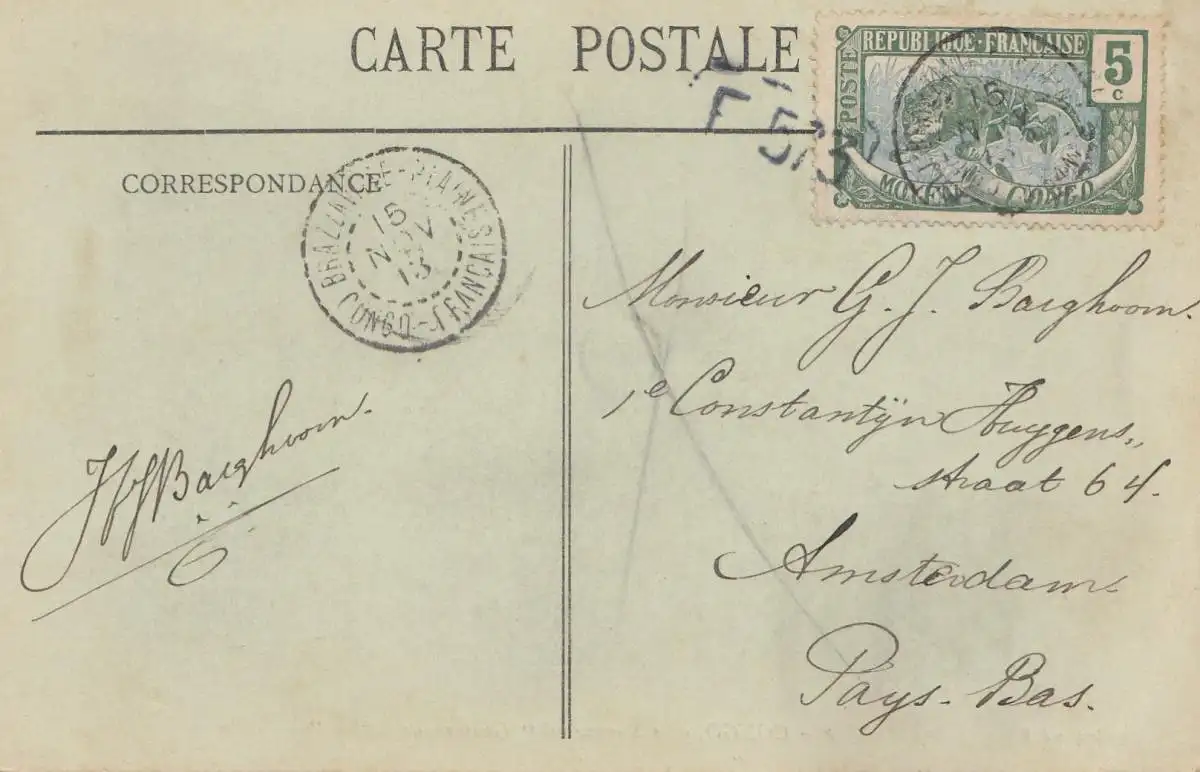 CARTE POSTALE
REPUBLIQUE·FRANÇAISE
POSTE
5
c
MOYEN CONGO
CORRESPONDANCE
BRAZZAVILLE-PLAINE
15
NOV
13
CONGO-FRANÇAIS
Monsieur G. J. Barghoorn.
1e Constantijn Huygens„
straat 64.
Amsterdam
Pays-Bas.
Barghoorn.